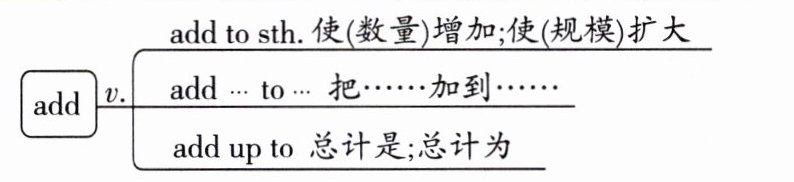 add to sth. 使(数量)增加;使(规模)扩大
add v.
add … to … 把……加到……
add up to 总计是;总计为